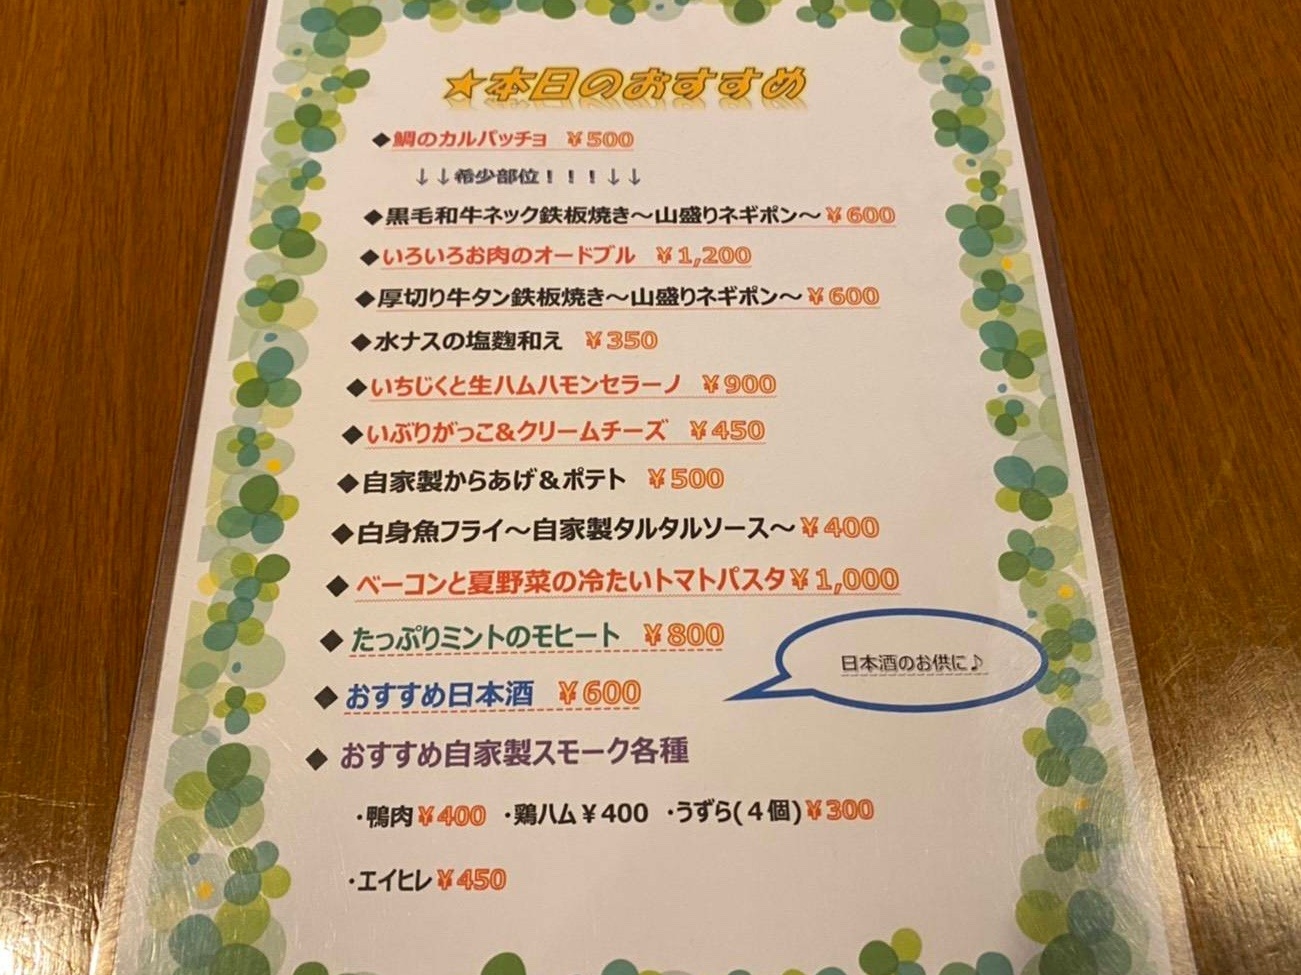 ★本日のおすすめ
◆鯛のカルパッチョ ￥500
↓↓希少部位！！！↓↓
◆黒毛和牛ネック鉄板焼き～山盛りネギポン～￥600
◆いろいろお肉のオードブル ￥1,200
◆厚切り牛タン鉄板焼き～山盛りネギポン～￥600
◆水ナスの塩麴和え ￥350
◆いちじくと生ハムハモンセラーノ ￥900
◆いぶりがっこ&クリームチーズ ￥450
◆自家製からあげ＆ポテト ￥500
◆白身魚フライ～自家製タルタルソース～￥400
◆ベーコンと夏野菜の冷たいトマトパスタ￥1,000
◆たっぷりミントのモヒート ￥800
日本酒のお供に♪
◆おすすめ日本酒 ￥600
◆おすすめ自家製スモーク各種
・鴨肉￥400 ・鶏ハム￥400 ・うずら(４個)￥300
・エイヒレ￥450